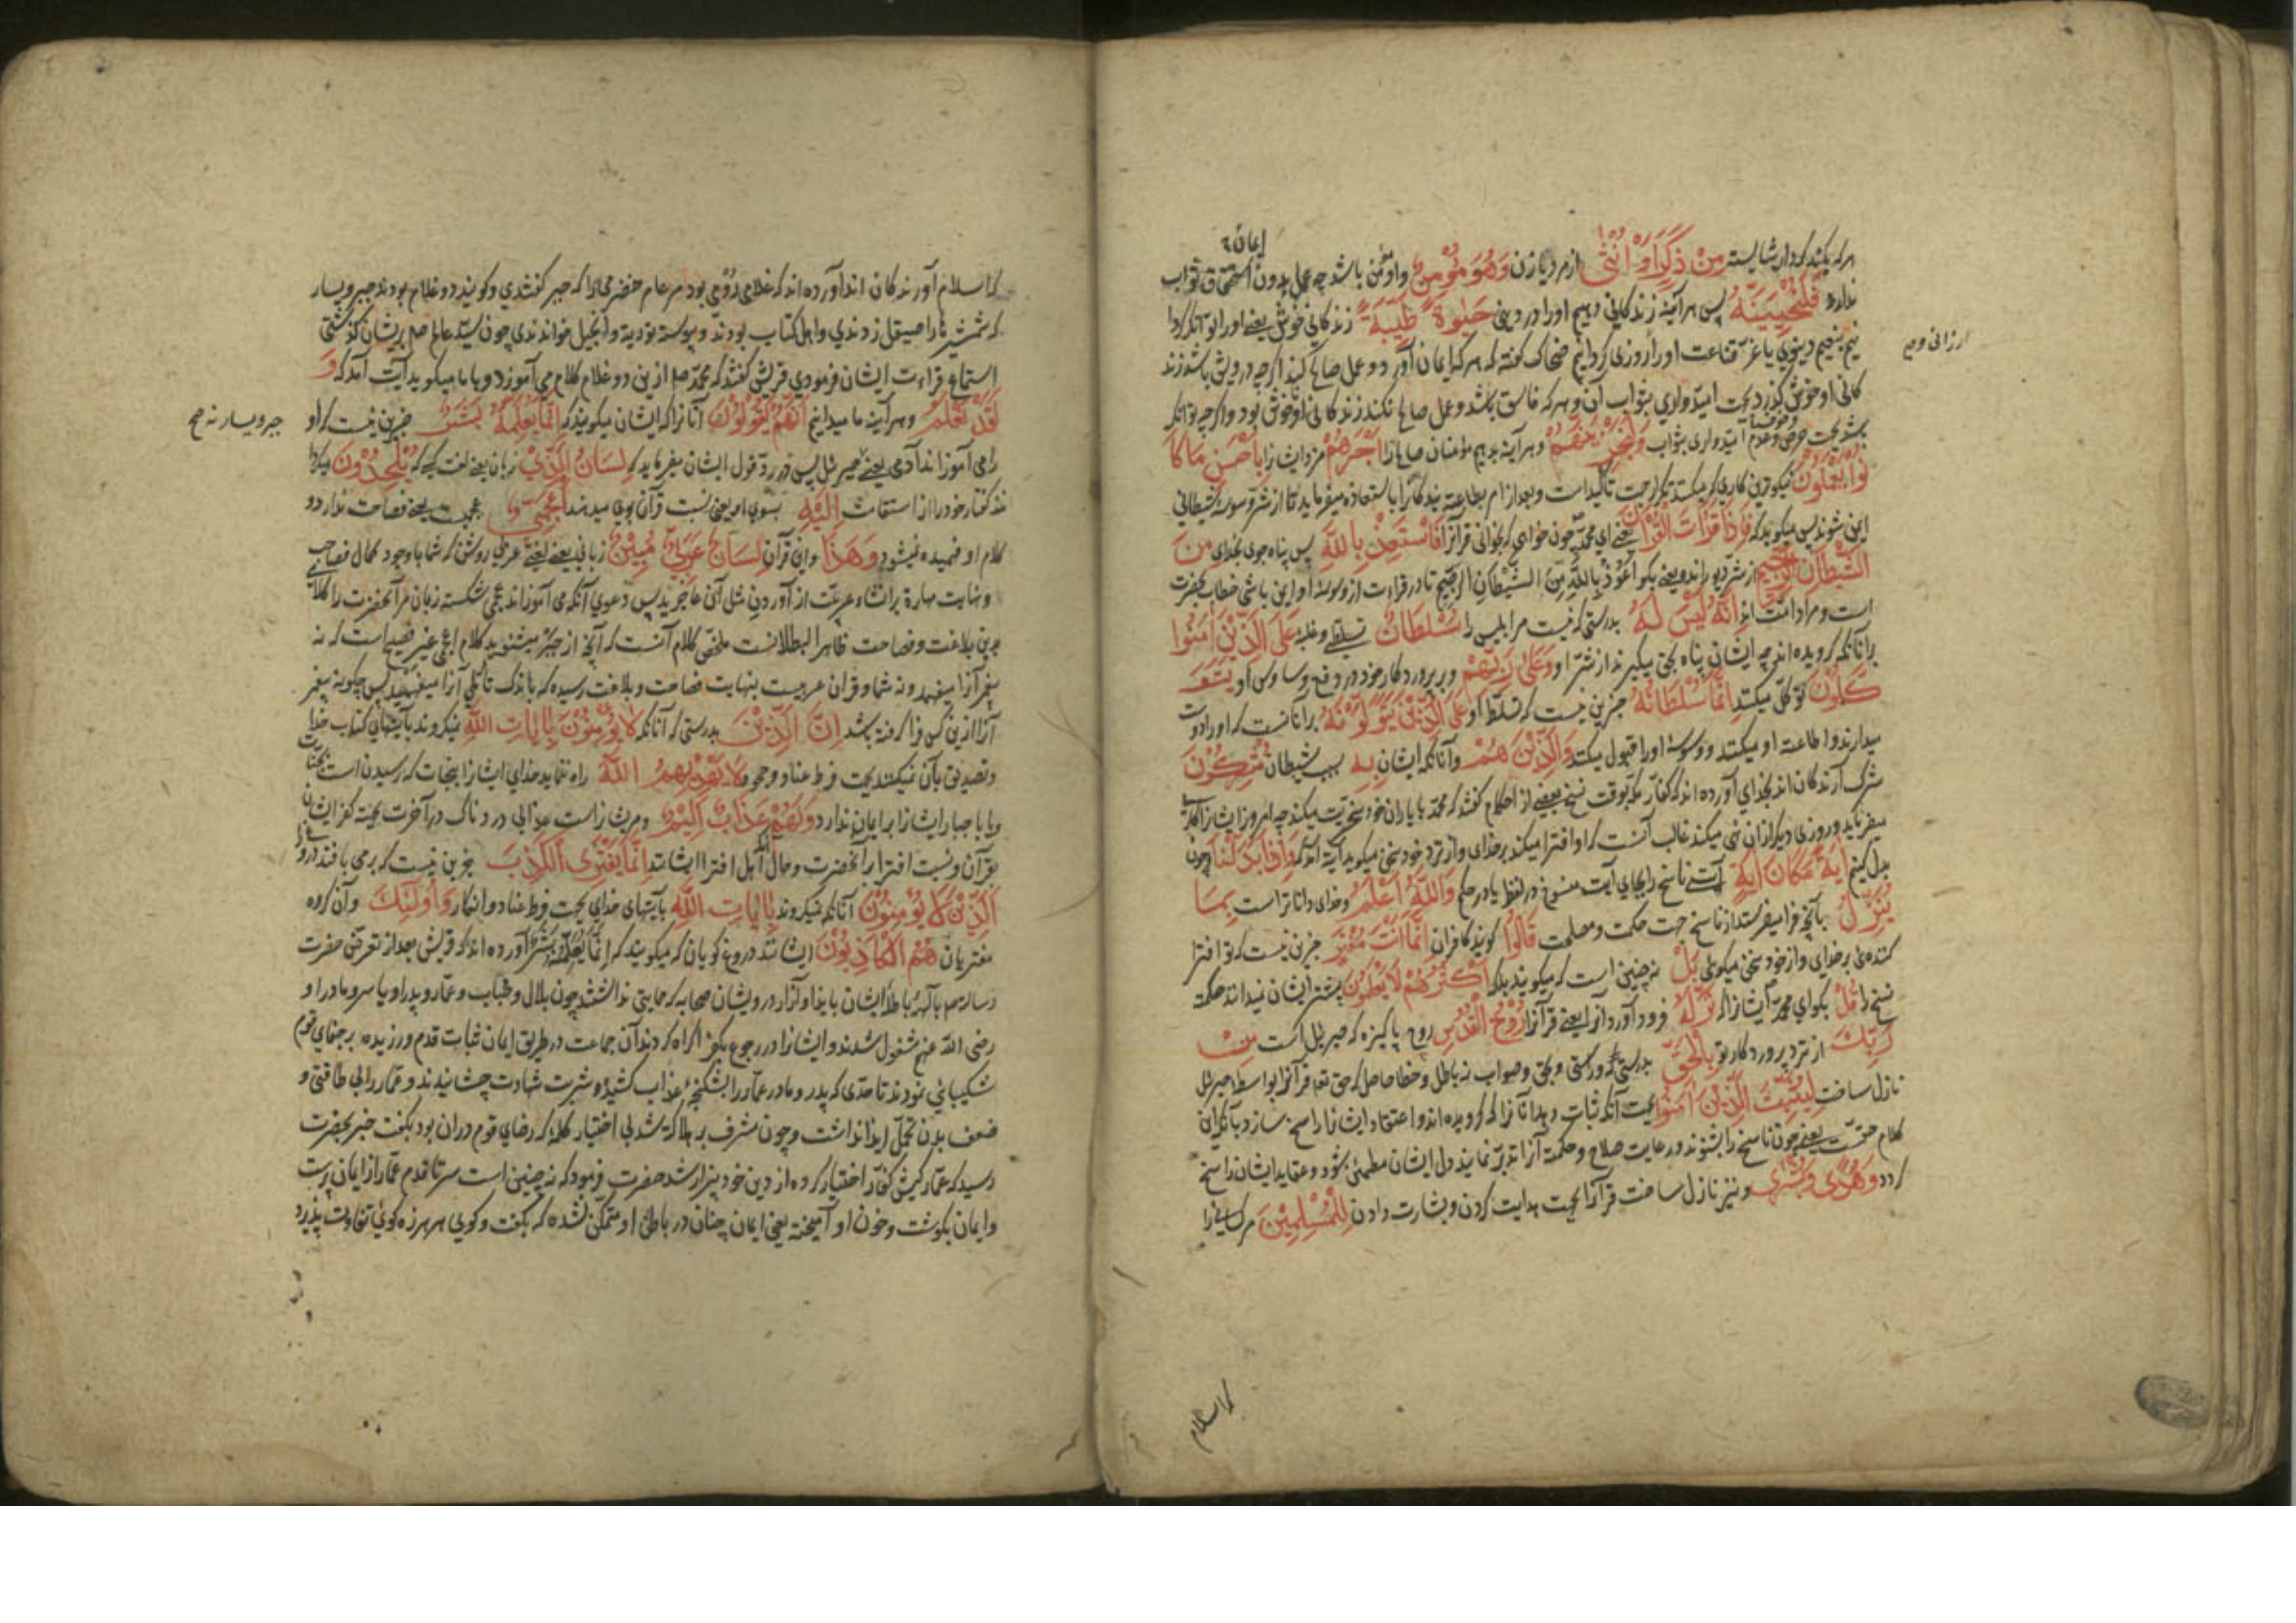 هر که بکند کردار شایسته مِنْ ذَكَرٍ اَوْ اُنْثٰى از مرد یا زن وَهُوَ مُؤْمِنٌ و او مؤمن باشد چه عمل بدون ایمان استحقاق ثواب
ندارد فَلَنُحْيِيَنَّهُ پس هر آینه زندگانی دهیم او را در دینی حَيٰوةً طَيِّبَةً زندگانی خوش یعنی او را توانگر کردا
نیم بنعیم دینوی یا عزّ قناعت او را روزی کردانیم ضحاک کفته که هر که ایمان آورد و عمل صالح کند اکرچه درویش باشد زند
کانی او خوش کذرد بجهت امیدواری بثواب آن و هر که فاسق باشد و عمل صالح نکند زندکانی او ناخوش بود و اکرچه توانکر
باشد بجهت حرص و عدم امیدواری بثواب وَلَنَجْزِيَنَّهُمْ و هر آینه بدیم مؤمنان صالح را اَجْرَهُمْ مزد ایشان را بِاَحْسَنِ مَا كَا
نُوْا يَعْمَلُوْنَ نیکوترین کاری که میکنند تکرار جهت تاکید است و بعد از امر بطاعت بندکان را باستعاذه میفرماید تا از شر وسوسه شیطانی
ایمن شوند پس میکوید که فَاِذَا قَرَاْتَ الْقُرْاٰنَ یعنی ای محمد چون خواهی که بخوانی قرآن را فَاسْتَعِذْ بِاللّٰهِ پس پناه جوی بخدای مِنَ
الشَّيْطَانِ الرَّجِيْمِ از شر دیو رانده یعنی بکو اَعُوْذُ بِاللّٰهِ مِنَ الشَّيْطَانِ الرَّجِيْمِ تا در قراءت از وسوسه او ایمن باشی خطاب بحضرت
است و مراد امت اند اِنَّهُ لَيْسَ لَهُ بدرستی که نیست مر ابلیس را سُلْطَانٌ تسلطی و غلبه عَلَى الَّذِيْنَ اٰمَنُوْا
بر آنانکه کرویده اند چه ایشان پناه بحق میگیرند از شر او وَعَلٰى رَبِّهِمْ و بر پروردکار خود در دفع وساوس او يَتَوَ
كَّلُوْنَ توکل میکنند اِنَّمَا سُلْطَانُهُ جز این نیست که تسلط او عَلَى الَّذِيْنَ يَتَوَلَّوْنَهُ بر آنانست که او را دوست
میدارند و اطاعت او میکنند و وسوسه او را قبول میکنند وَالَّذِيْنَ هُمْ و آنانکه ایشان بِهِ بسبب شیطان مُشْرِكُوْنَ
شرک آرندکان اند بخدای آورده اند که کفار مکه بوقت نسخ بعضی از احکام کفتند که محمد با یاران خود سخریت میکند چه امروز ایشان را بکاری
میفرماید و روزی دیکر از ان نهی میکند غالب آنست که او افترا میکند بر خدای و از نزد خود سخن میکوید آیت آمد که وَاِذَا بَدَّلْنَا و چون
بدل کنیم اٰيَةً مَكَانَ اٰيَةٍ آیتی ناسخ را بجای آیت منسوخ در لفظ یا در حکم وَاللّٰهُ اَعْلَمُ و خدای داناتر است بِمَا
يُنَزِّلُ بآنچه فرا میفرستد از ناسخ جهت حکمت و مصلحت قَالُوْا کویند کافران اِنَّمَا اَنْتَ مُفْتَرٍ جز این نیست که تو افترا
کننده‌ی بر خدای و از خود سخن میکوی بَلْ نه چنین است که میکویند بلکه اَكْثَرُهُمْ لَا يَعْلَمُوْنَ بیشتر ایشان نمیدانند حکمت
نسخ را قُلْ بکو ای محمد ایشان را که نَزَّلَهُ فرود آورد آنرا یعنی قرآن را رُوْحُ الْقُدُسِ روح پاکیزه که جبرئیل است مِنْ
رَبِّكَ از نزد پروردکار تو بِالْحَقِّ بدرستی که و راستی و بحق و صواب نه باطل و خطا حاصل که حق تعالی قرآن را بواسطه جبرئیل
نازل ساخت لِيُثَبِّتَ الَّذِيْنَ اٰمَنُوْا بجهت آنکه ثبات دهد آنانرا که کرویده اند و اعتقاد ایشان را راسخ سازد بآنکه ان
کلام حقست یعنی چون ناسخ را بشنوند و رعایت صلاح و حکمت آنرا تدبر نمایند دل ایشان مطمئن شود و عقاید ایشان راسخ
کردد وَهُدًى وَبُشْرٰى و نیز نازل ساخت قرآن را بجهت هدایت کردن و بشارت دادن لِلْمُسْلِمِيْنَ مر کسانی را
که اسلام
که اسلام آورندکان اند آورده اند که غلامی رومی بود مر عامر حضرمی را که جبر کفتندی و کویند دو غلام بودند جبر و یسار
که شمشیرها را صیقل زدندی و اهل کتاب بودند و پیوسته توریة و انجیل خواندندی چون سید عالم صلعم بر ایشان کذشتی
استماع قراءت ایشان فرمودی قریش کفتند که محمد صلعم ازین دو غلام کلام می آموزد و با ما میکوید آیت آمد که وَ
لَقَدْ نَعْلَمُ و هر آینه ما میدانیم اَنَّهُمْ يَقُوْلُوْنَ آنانرا که ایشان میکویند که اِنَّمَا يُعَلِّمُهُ بَشَرٌ جز این نیست که او
جبر و یسار نه صح
را می آموزاند آدمی یعنی جبر پس در رد قول ایشان میفرماید که لِسَانُ الَّذِيْ زبان یعنی لغت کسی که يُلْحِدُوْنَ میکردا
نند کفتار خود را از استقامت اِلَيْهِ بسوی او یعنی نسبت قرآن بوی میدهند اَعْجَمِيٌّ عجمیت یعنی فصاحت ندارد و
کلام او فهمیده نمیشود وَهٰذَا و این قرآن لِسَانٌ عَرَبِيٌّ مُبِيْنٌ زبانی یعنی لغتی عربی روشن که شما با وجود کمال فصاحت
و نهایت مهارة بر انشاء عربیت از آوردن مثل آن عاجزید پس دعوی آنکه می آموزاند عجمی شکسته زبان مر آنحضرت را کلامی
بدین بلاغت و فصاحت ظاهر البطلانست ملخص کلام آنست که آنچه از جبر میشنوید کلام اعجمی غیر فصیح است که نه
پیغمبر آنرا میفهمد و نه شما و قران عربیست بنهایت فصاحت و بلاغت رسیده که باندک تاملی آنرا میفهمید پس چکونه پیغمبر
آنرا ازین کس فرا کرفته باشد اِنَّ الَّذِيْنَ بدرستی که آنانکه لَا يُؤْمِنُوْنَ بِاٰيَاتِ اللّٰهِ نمیکروند بآیتهای کتاب خدا
و تصدیق بآن نمیکنند بجهت فرط عناد و جحود لَا يَهْدِيْهِمُ اللّٰهُ راه ننماید خدای ایشان را بنجات که رسیدن است بجنات
و یا با جبار ایشان را بر ایمان ندارد وَلَهُمْ عَذَابٌ اَلِيْمٌ و مر ایشان راست عذابی دردناک در آخرت بجهت کفر ایشان
بقرآن و نسبت افترا بر آنحضرت و حال آنکه اهل افترا ایشانند اِنَّمَا يَفْتَرِى الْكَذِبَ جز این نیست که بر می بافند دروغ را
الَّذِيْنَ لَا يُؤْمِنُوْنَ آنانکه نمیکروند بِاٰيَاتِ اللّٰهِ بآیتهای خدای بجهت فرط عناد و انکار وَاُولٰئِكَ و آن کروه
مفتریان هُمُ الْكَاذِبُوْنَ ایشانند دروغ کویان که میکویند که اِنَّمَا يُعَلِّمُهُ بَشَرٌ آورده اند که قریش بعد از تعرض حضرت
رسالت صلعم بآلهه باطله ایشان بایذا و آزار درویشان صحابه که حمایتی نداشتند چون بلال و خباب و عمار و پدر او یاسر و مادر او
رضی الله عنهم مشغول شدند و ایشان را در رجوع بکفر اکراه کردند آن جماعت در طریق ایمان ثبات قدم ورزیده بر جفای قوم
شکیبائی نمودند تا حدی که پدر و مادر عمار را بشکنجه عذاب کشیده شربت شهادت چشانیدند و عمار را بی طاقتی و
ضعف بدن تحمل ایذا نداشت و چون مشرف بر هلاک شد بی اختیار کلمه که رضای قوم دران بود بکفت خبر بحضرت
رسید که عمار کیش کفار اختیار کرده از دین خود بیزار شد حضرت فرمود که نه چنین است سر تا قدم عمار از ایمان پرست
و ایمان بکوشت و خون او آمیخته یعنی ایمان چنان در باطن او متمکن نشده که بکفت و کوی هر هرزه کوئی تفاوت پذیرد